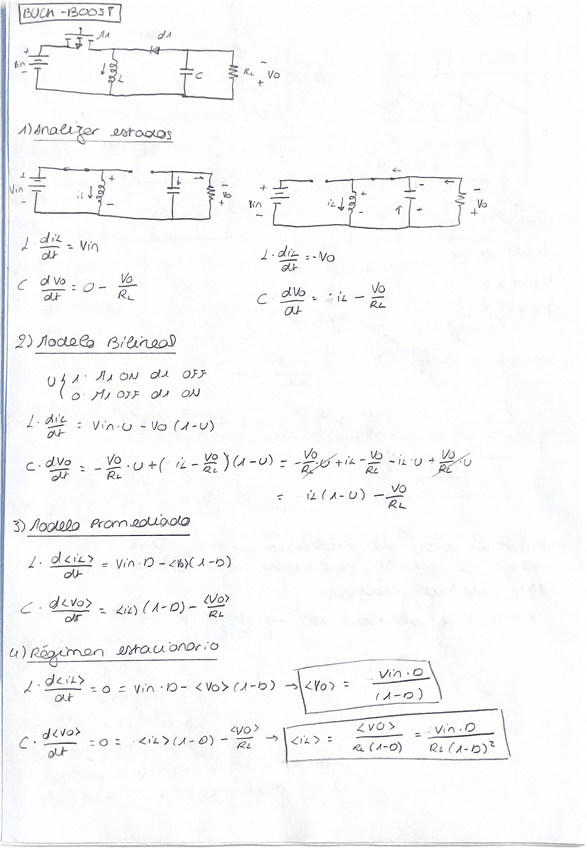 BUCK-BOOST
M1 d1
Vin + - L C RL - Vo +
1) Analizar estados
Vin + - iL + - - Vo +
Vin + - iL + - - + - Vo +
L · diL/dt = Vin
L · diL/dt = -Vo
C dVo/dt = 0 - Vo/RL
C dVo/dt = iL - Vo/RL
2) Modelo Bilineal
U { 1 · M1 ON d1 OFF
0 · M1 OFF d1 ON
L · diL/dt = Vin · U - Vo (1-U)
C · dVo/dt = - Vo/RL · U + ( iL - Vo/RL ) (1-U) = - Vo/RL · U + iL - Vo/RL - iL · U + Vo/RL · U
= iL (1-U) - Vo/RL
3) Modelo Promediado
L · d<iL>/dt = Vin · D - <Vo> (1-D)
C · d<Vo>/dt = <iL> (1-D) - <Vo>/RL
4) Régimen estacionario
L · d<iL>/dt = 0 = Vin · D - <Vo> (1-D) → <Vo> = Vin · D / (1-D)
C · d<Vo>/dt = 0 = <iL> (1-D) - <Vo>/RL → <iL> = <Vo> / RL (1-D) = Vin · D / RL (1-D)²